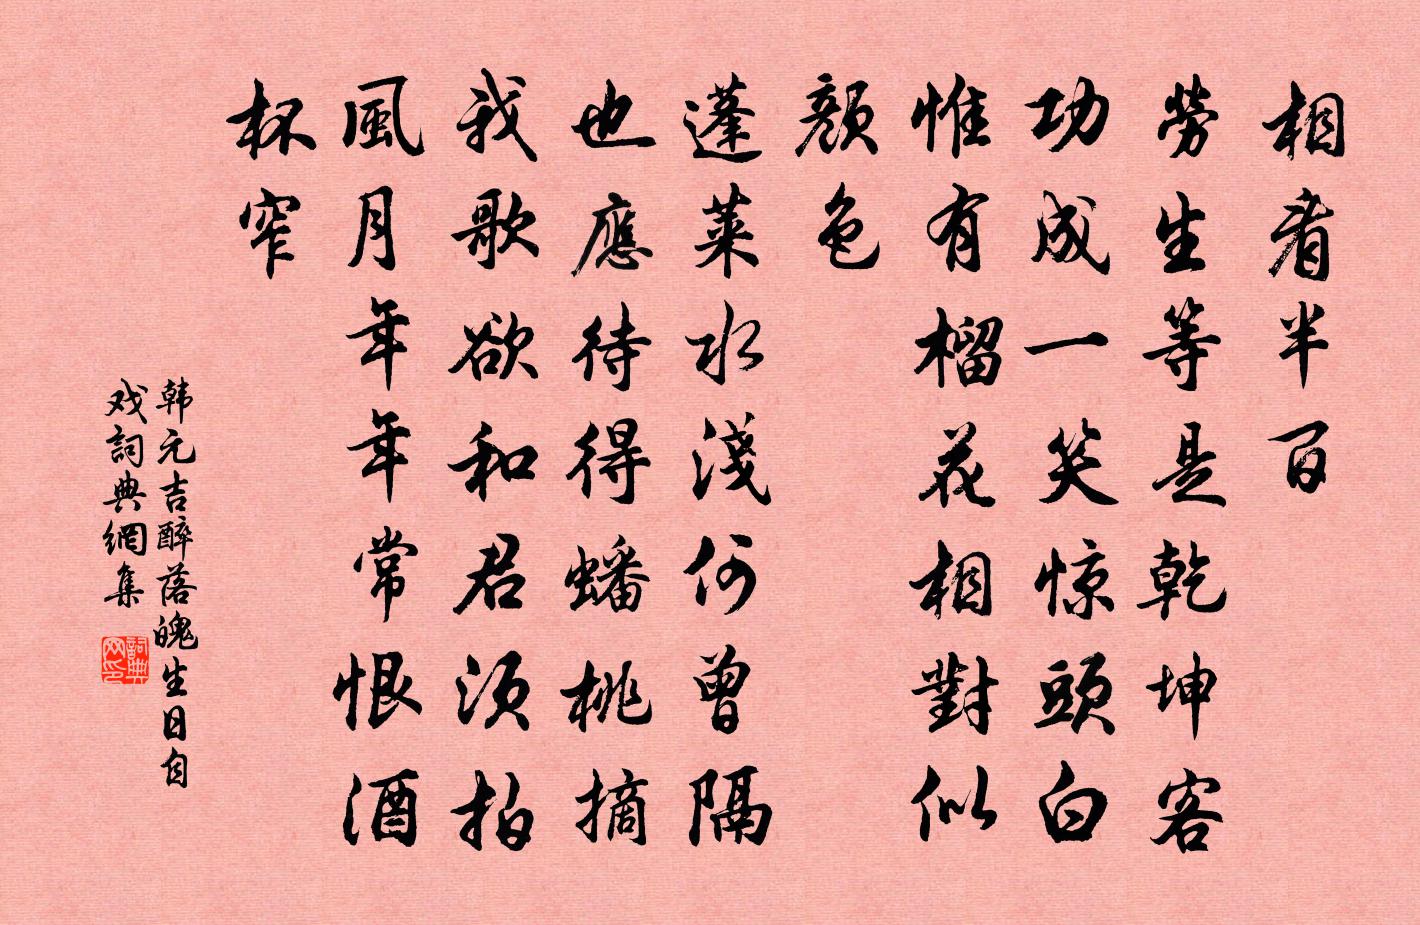 相看半百
勞生等是乾坤客
功成一笑惊頭白
惟有榴花相對似
顏色
蓬萊水淺何曾隔
也應待得蟠桃摘
我歌欲和君須拍
風月年年常恨酒
杯窄
韩元吉醉落魄生日自
戏詞典網集
詞典网印